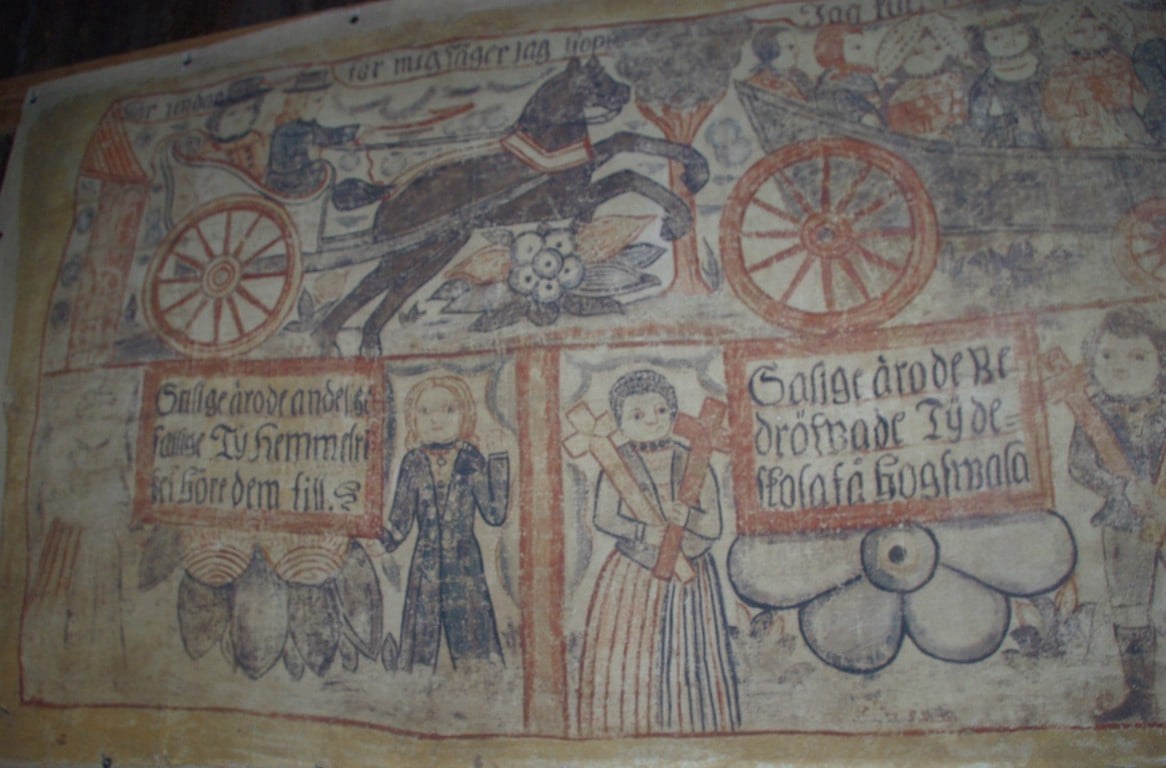 för mig säger jag hopp
Jag
Salige äro de andelige
fattige Ty Hemmelri
kei höre dem till.
Salige äro de Be
dröfwade Tÿ de=
skola få Hogswala